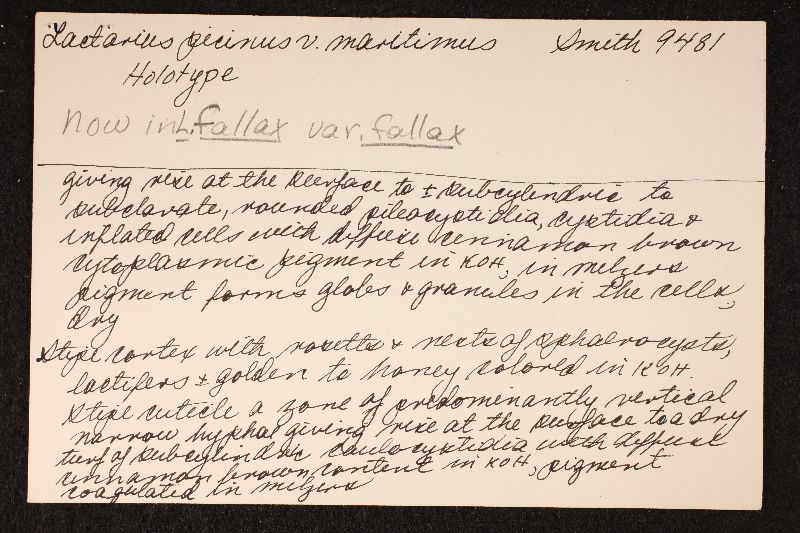 Lactarius picinus v. maritimus Smith 9481
Holotype
Now in L. fallax var. fallax
giving rise at the surface to ± subcylendric to
subclavate, rounded pileocystidia, cystidia &
inflated cells with diffuse cinnamon brown
cytoplasmic pigment in KOH, in melzers
pigment forms globs & granules in the cells,
dry
Stipe cortex with rosetts & nests of sphaerocysts,
lactifers ± golden to honey colored in KOH.
Stipe cuticle a zone of predominantly vertical
narrow hyphal giving rise at the surface to a dry
turf of subcylindric caulocystidia with diffuse
cinnamon brown content in KOH, pigment
coagulated in melzers